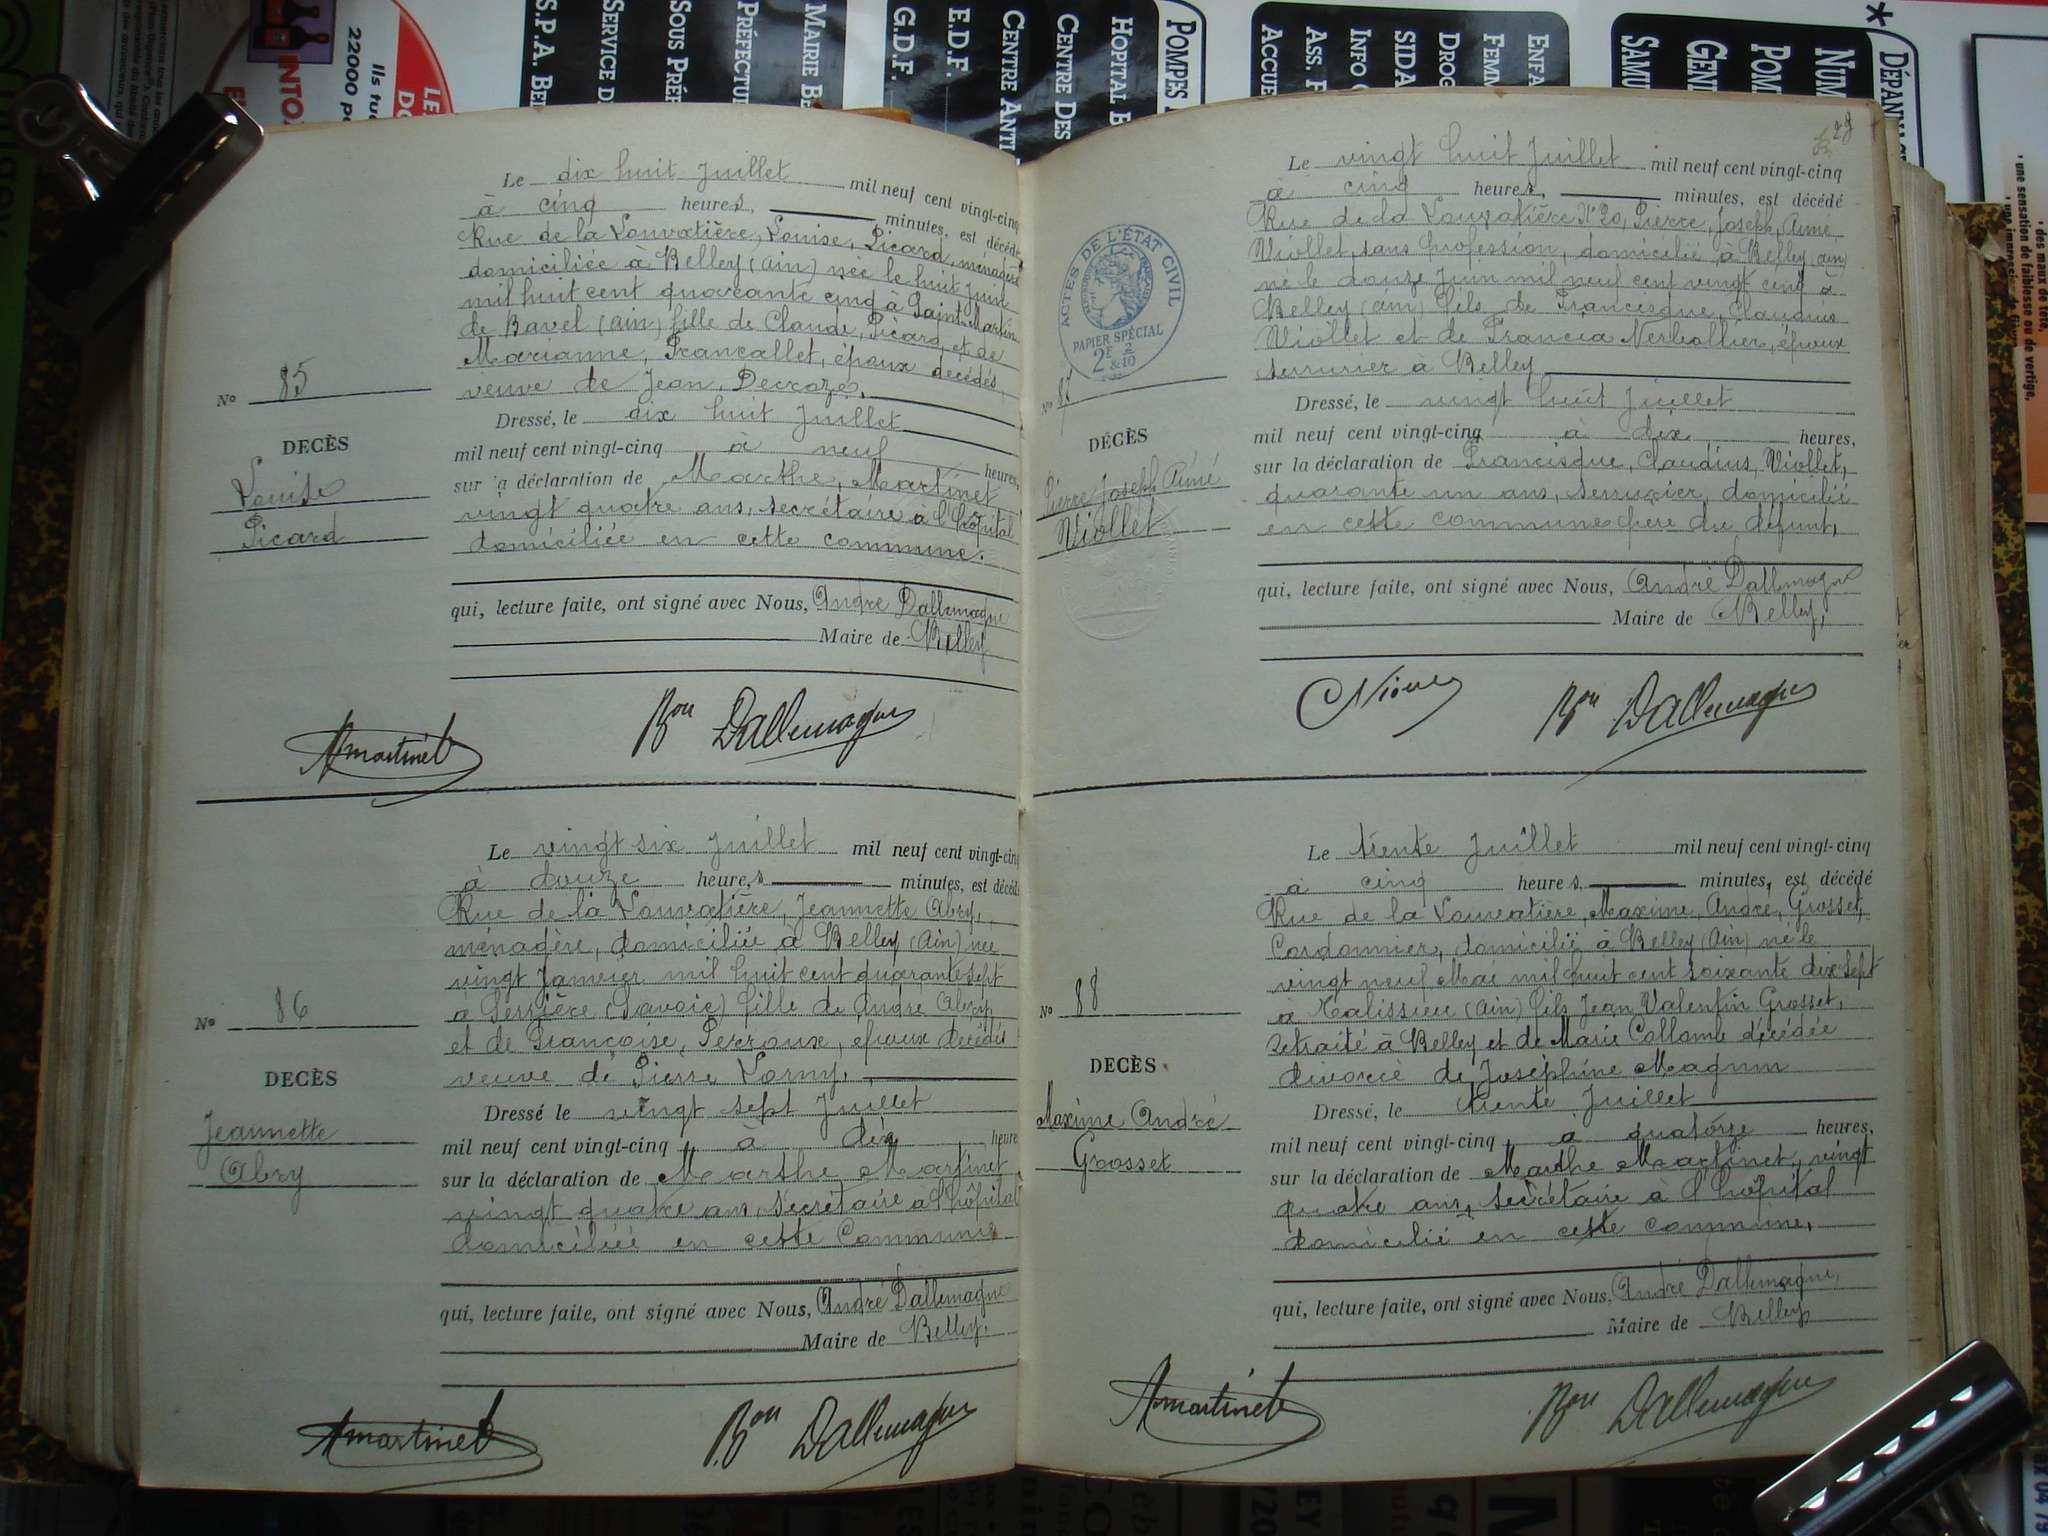 LE
DO
Ils tue
22000 p
INTO
S.P.A. BE
SERVICE D
SOUS PRÉ
PRÉFECTU
MAIRIE BE
G.D.F.
E.D.F.
CENTRE ANTI
CENTRE DES
HOPITAL B
POMPES
ACCUE
ASS. F
INFO
SIDA
DROG
FEMM
ENFA
SAMU
GEN
POM
NUM
DÉPANNA
*
Le dix huit Juillet mil neuf cent vingt-cinq
à cinq heures, minutes, est décédé
Rue de la Louvatière, Louise, Picard, ménagère
domiciliée à Belley (Ain) née le huit Juin
mil huit cent quarante cinq à Saint-Martin
de Bavel (Ain) fille de Claude, Picard et de
Marianne, Francallet, époux décédés,
veuve de Jean, Decroze.
Nº 85
DECÈS
Louise
Picard
Dressé, le dix huit Juillet
mil neuf cent vingt-cinq à neuf heures,
sur la déclaration de Marthe, Martinet
vingt quatre ans, secrétaire à l'hôpital
domiciliée en cette commune.
qui, lecture faite, ont signé avec Nous, André Dallemagne
Maire de Belley
AMartinet
Bon Dallemagne
Le vingt six Juillet mil neuf cent vingt-cinq
à douze heures minutes, est décédé
Rue de la Louvatière, Jeannette Abry,
ménagère, domiciliée à Belley (Ain) née
vingt Janvier mil huit cent quarante sept
à Serrière (Savoie) fille de André Abry,
et de Françoise, Perroux, époux décédés
veuve de Pierre Lorny.
Nº 86
DECÈS
Jeannette
Abry
Dressé le vingt sept Juillet
mil neuf cent vingt-cinq à dix heure
sur la déclaration de Marthe Martinet
vingt quatre ans, secrétaire à l'hôpital
domiciliée en cette Commune
qui, lecture faite, ont signé avec Nous, André Dallemagne
Maire de Belley.
AMartinet
Bon Dallemagne
28
Le vingt huit Juillet mil neuf cent vingt-cinq
à cinq heures, minutes, est décédé
Rue de la Louvatière Nº 20, Pierre, Joseph, Aimé
Viollet, sans profession, domicilié à Belley (Ain)
né le douze Juin mil neuf cent vingt cinq à
Belley (Ain) fils de Francisque, Claudius
Viollet et de Francia Nerballier, époux
serrurier à Belley
ACTES DE L'ÉTAT CIVIL
PAPIER SPÉCIAL
2F & 2/10
Nº 87
DÉCÈS
Pierre Joseph Aimé
Viollet
Dressé, le vingt huit Juillet
mil neuf cent vingt-cinq à dix heures,
sur la déclaration de Francisque, Claudius, Viollet,
quarante un ans, serrurier, domicilié
en cette commune père du défunt,
qui, lecture faite, ont signé avec Nous, André Dallemagne
Maire de Belley,
Bon Dallemagne
Le trente Juillet mil neuf cent vingt-cinq
à cinq heures, minutes, est décédé
Rue de la Louvatière, Maxime, André, Grosset,
Cordonnier, domicilié à Belley (Ain) né le
vingt neuf Mai mil huit cent soixante dix sept
à Talissieu (Ain) fils Jean Valentin Grosset,
retraité à Belley et de Marie Collomb décédée
divorcé de Joséphine Magnin
Nº 88
DECÈS
Maxime André
Grosset
Dressé, le trente Juillet
mil neuf cent vingt-cinq à quatorze heures,
sur la déclaration de Marthe Martinet, vingt
quatre ans, secrétaire à l'hôpital
domicilié en cette commune,
qui, lecture faite, ont signé avec Nous, André Dallemagne,
Maire de Belley
AMartinet
Bon Dallemagne